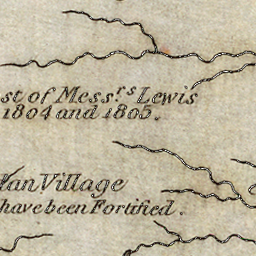 st of Messrs Lewis
1804 and 1805.
an Village
have been Fortified.